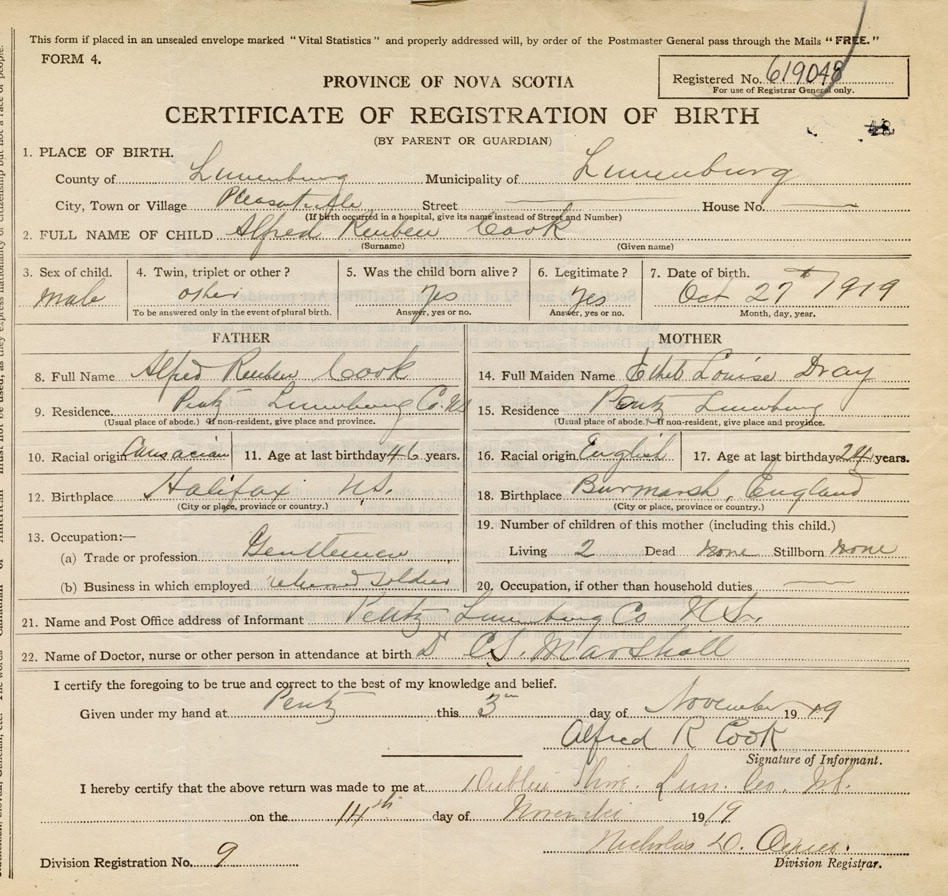 This form if placed in an unsealed envelope marked "Vital Statistics" and properly addressed will, by order of the Postmaster General pass through the Mails "FREE."
FORM 4.
Registered No. 619048
For use of Registrar General only.
PROVINCE OF NOVA SCOTIA
CERTIFICATE OF REGISTRATION OF BIRTH
(BY PARENT OR GUARDIAN)
1. PLACE OF BIRTH.
County of Lunenburg Municipality of Lunenburg
City, Town or Village Street House No.
(If birth occurred in a hospital, give its name instead of Street and Number)
2. FULL NAME OF CHILD Alfred Reuben Cook
(Surname) (Given name)
3. Sex of child. 4. Twin, triplet or other? 5. Was the child born alive? 6. Legitimate? 7. Date of birth.
Male other Yes Yes Oct 27th 1919
To be answered only in the event of plural birth. Answer, yes or no. Answer, yes or no. Month, day, year.
FATHER MOTHER
8. Full Name Alfred Reuben Cook
14. Full Maiden Name Ethel Louise Dray
9. Residence. Pentz Lunenburg Co. NS
(Usual place of abode.) If non-resident, give place and province.
15. Residence Pentz Lunenburg
(Usual place of abode.) If non-resident, give place and province.
10. Racial origin 11. Age at last birthday 46 years.
16. Racial origin English 17. Age at last birthday 24 years.
12. Birthplace Halifax NS.
(City or place, province or country.)
18. Birthplace Burmarsh, England
(City or place, province or country.)
13. Occupation:—
(a) Trade or profession Gentleman
(b) Business in which employed returned soldier
19. Number of children of this mother (including this child.)
Living 2 Dead none Stillborn none
20. Occupation, if other than household duties.
21. Name and Post Office address of Informant Pentz Lunenburg Co N.S.
22. Name of Doctor, nurse or other person in attendance at birth Dr C.S. Marshall
I certify the foregoing to be true and correct to the best of my knowledge and belief.
Given under my hand at Pentz this 3rd day of November 1919
Alfred R Cook
Signature of Informant.
I hereby certify that the above return was made to me at Dublin Shore. Lun. Co. NS.
on the 14th day of November 1919
Nicholas D.
Division Registrar.
Division Registration No. 9